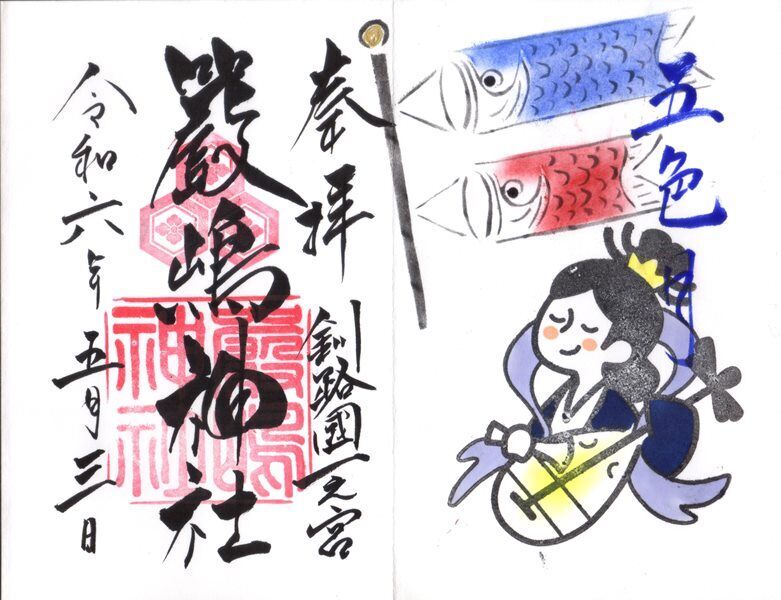 五色月
奉拝
釧路國一之宮
嚴嶋神社
嚴嶋
神社
令和六年五月三日